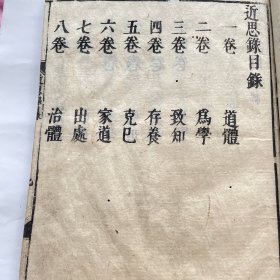 近思錄目錄
一卷 道體
二卷 爲學
三卷 致知
四卷 存養
五卷 克己
六卷 家道
七卷 出處
八卷 治體